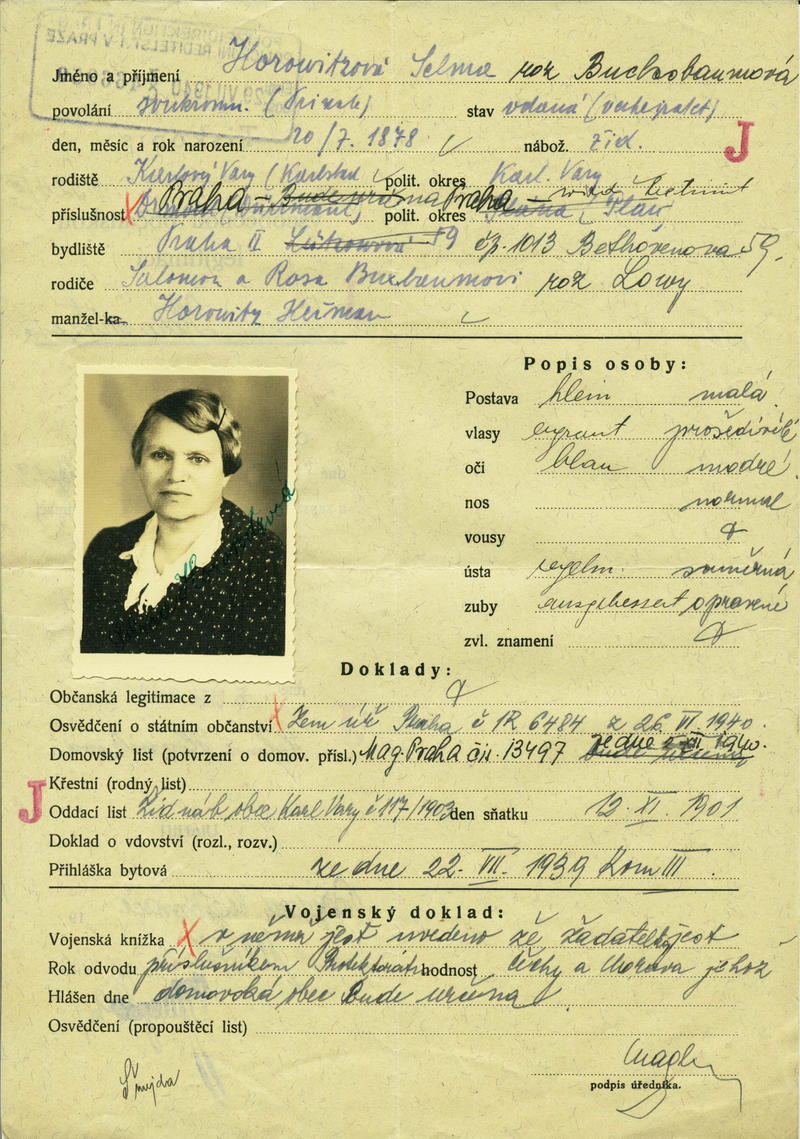 ŘEDITELSTVÍ V PRAZE
29 VII 1940
Jméno a příjmení Horowitzová Selma roz Buchsbaumová
povolání soukromn. (Private) stav vdaná (verheiratet)
den, měsíc a rok narození 20/7. 1878 nábož. žid.
J
rodiště Karlovy Vary (Karlsbad polit. okres Karl. Vary
příslušnost Praha – Bude určena polit. okres Praha –
bydliště Praha II 59 čp. 1013 Bethovenova 59.
rodiče Salomon a Rosa Buxbaumovi roz Lowy
manžel-ka Horowitz Heřman
Popis osoby:
Postava klein malá
vlasy ergraut prošedivělé
oči blau modré
nos normal
vousy
ústa regelm. souměrná
zuby ausgebessert opravené
zvl. znamení
Doklady:
Občanská legitimace z
Osvědčení o státním občanství Zem úř Praha č 1R 6484 z 26 VI 1940.
Domovský list (potvrzení o domov. přísl.) Mag. Praha čís. 13497 ze dne XII 1940.
Křestní (rodný list)
J
Oddací list Žid náb obec Karl Vary č 117/1903 den sňatku 12 XI. 1901
Doklad o vdovství (rozl., rozv.)
Přihláška bytová ze dne 22. VII. 1939 Kom III.
Vojenský doklad:
Vojenská knížka X v němž jest uvedeno že žadatelka jest
Rok odvodu příslušníkem Protektorátu hodnost Čechy a Morava jehož
Hlášen dne domovská obec Bude určena
Osvědčení (propouštěcí list)
podpis úředníka.